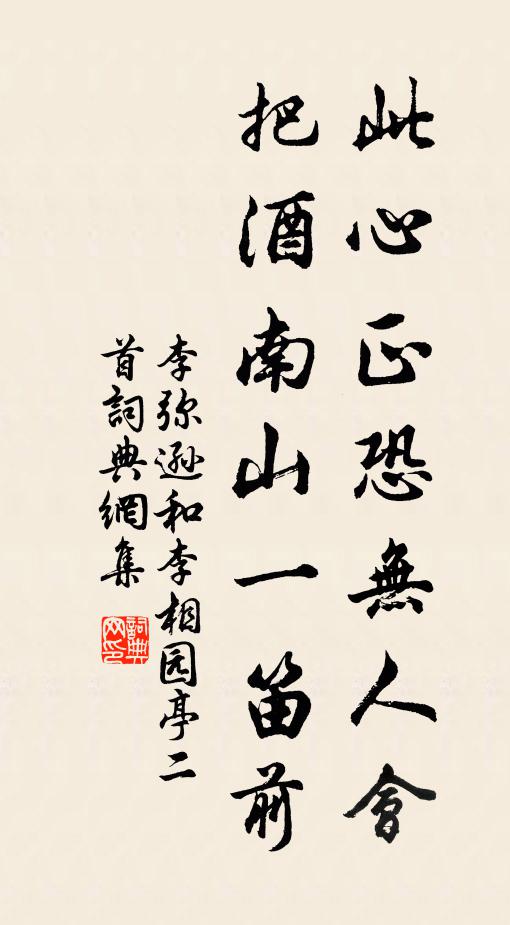 此心正恐無人會
把酒南山一笛前
李弥遜和李相园亭二
首詞典網集
詞典
网印